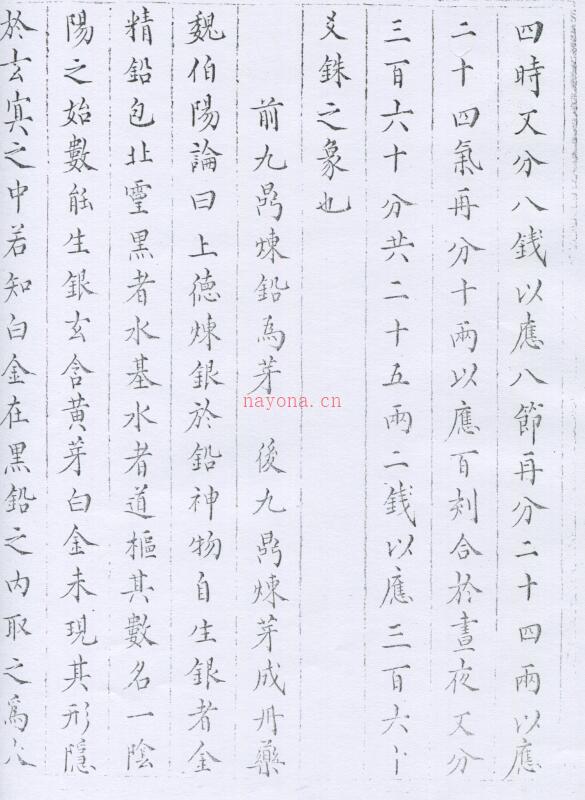 四時又分八銭以應八節再分二十四兩以應
二十四氣再分十兩以應百刻合於晝夜又分
三百六十分共二十五兩二銭以應三百六十
爻銖之象也
前九鼎煉鉛為芽　後九鼎煉芽成丹藥
魏伯陽論曰上德煉銀於鉛神物自生銀者金
精鉛包北靈黑者水基水者道樞其數名一陰
陽之始數能生銀玄含黄芽白金未現其形隱
於玄冥之中若知白金在黒鉛之内取之爲
nayona.cn